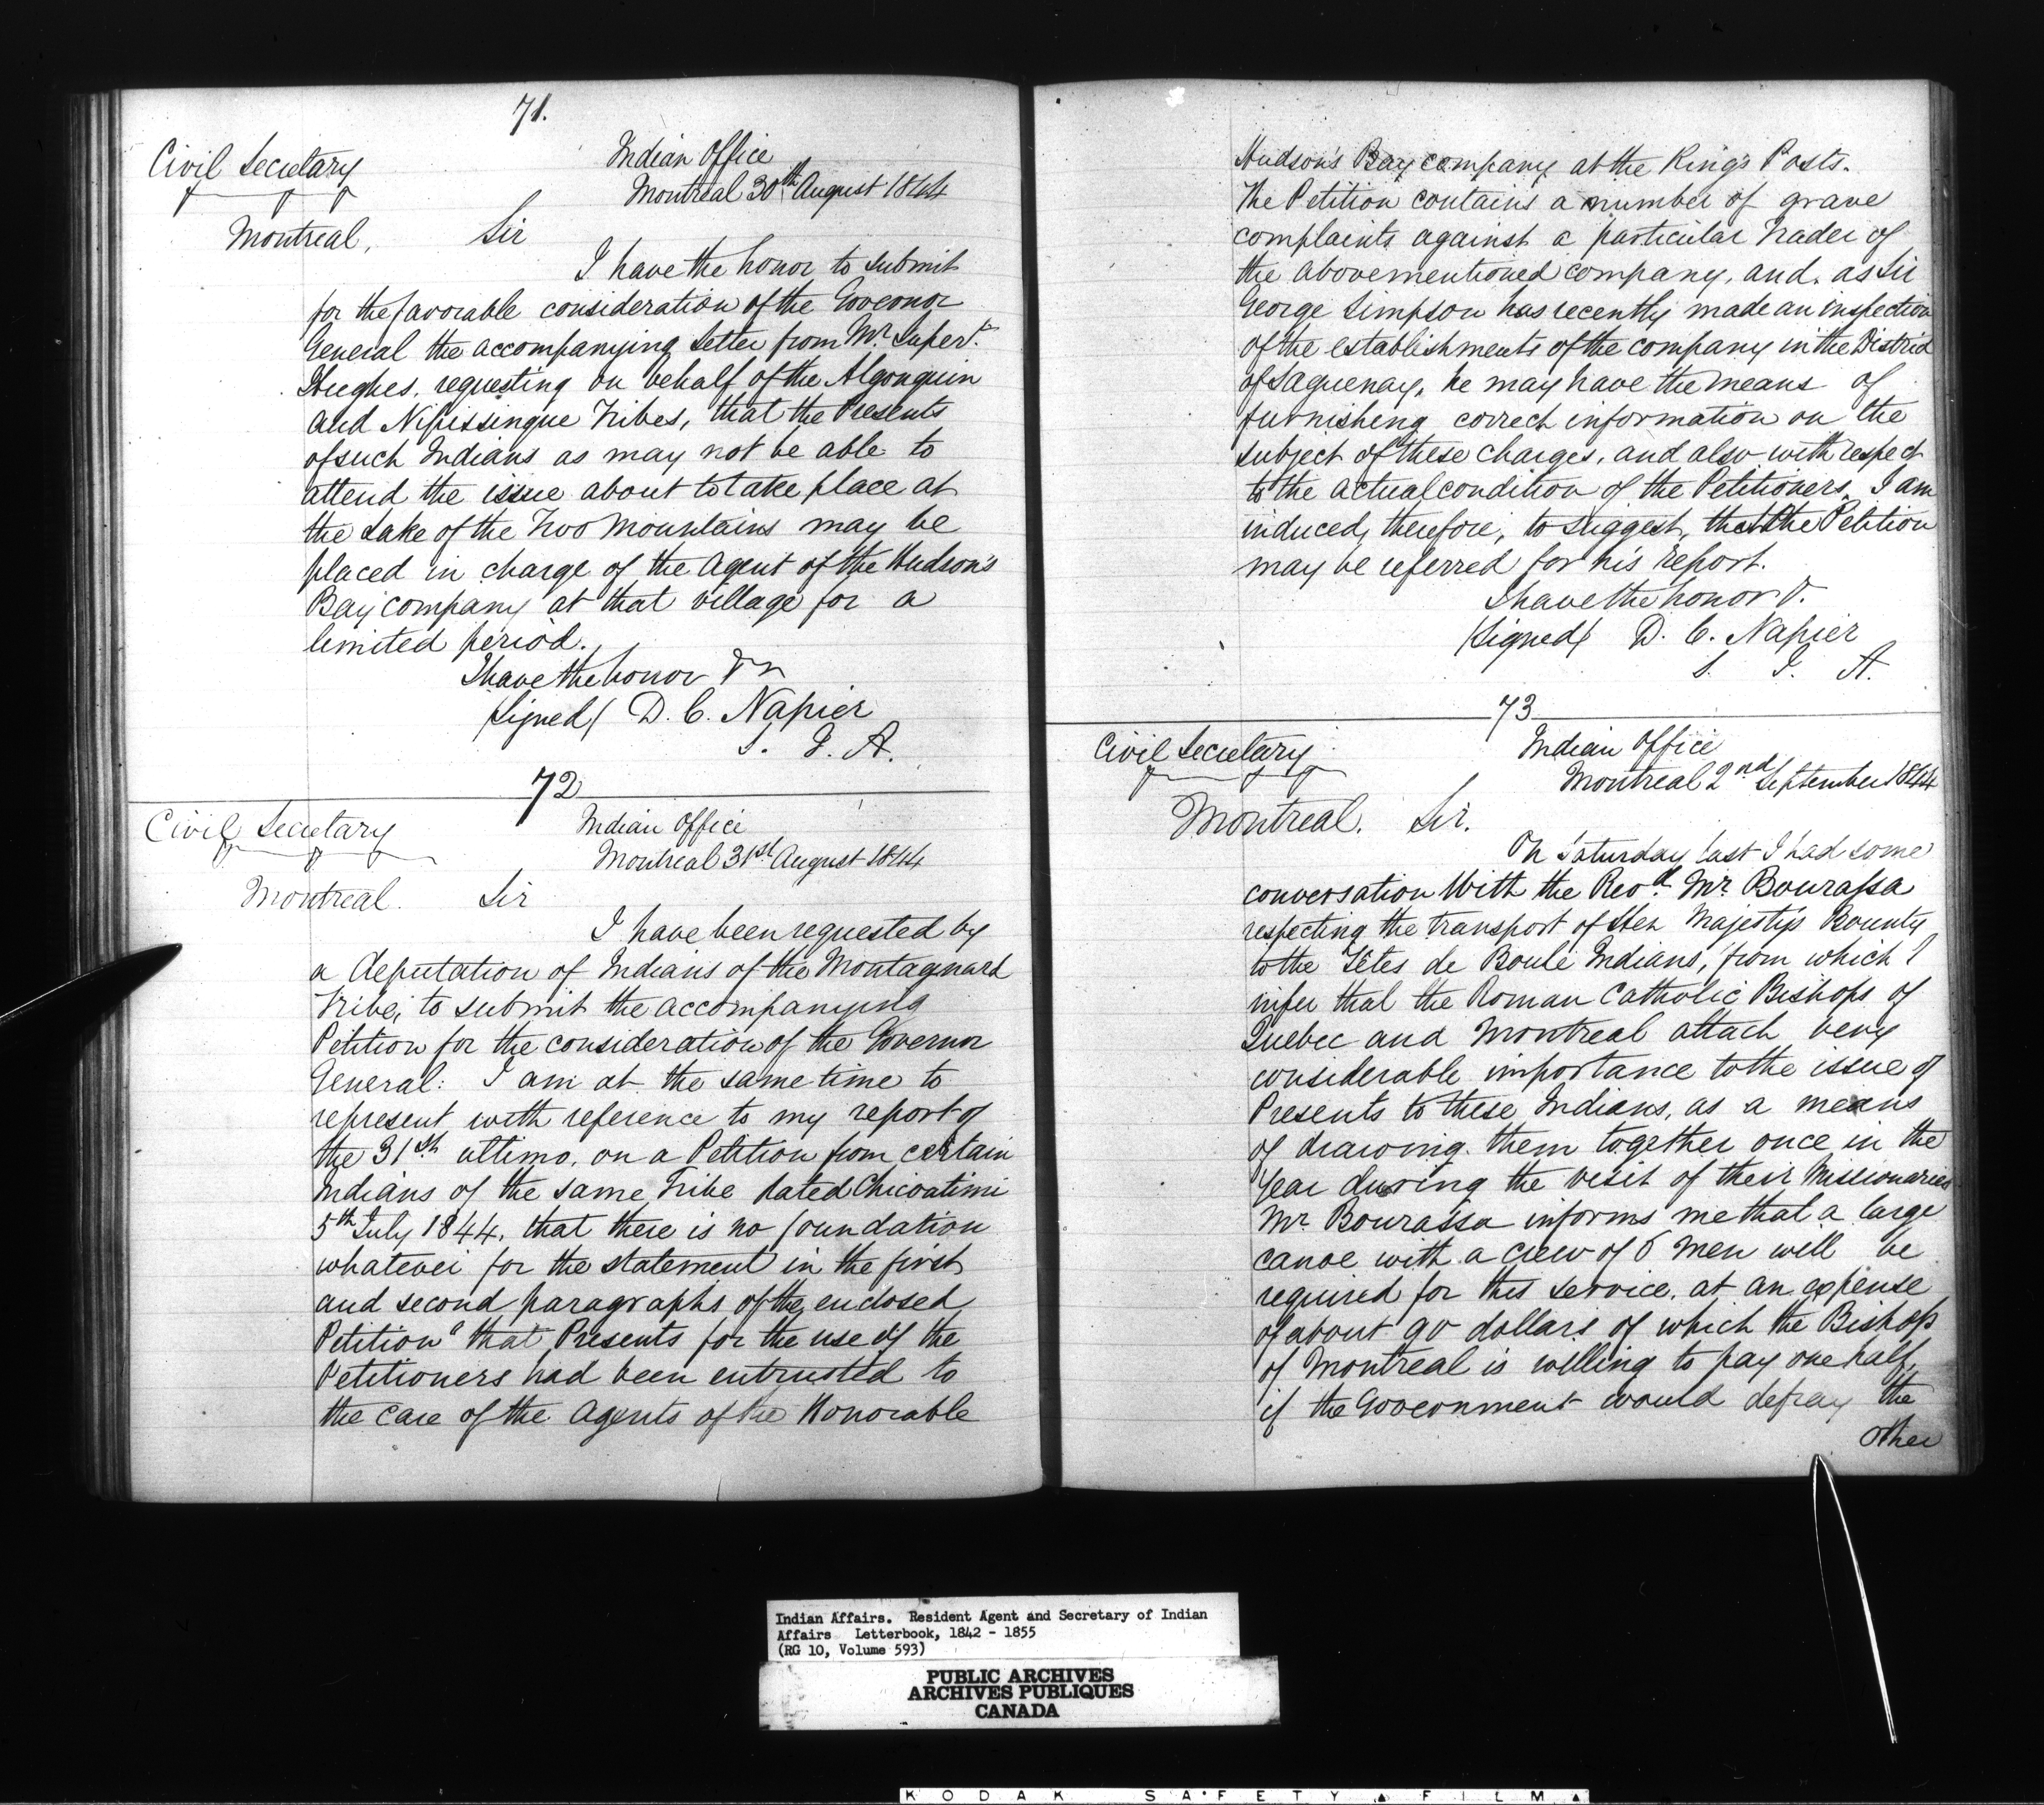 71.
Civil Secretary
Montreal,
Indian Office
Montreal 30th August 1844
Sir
I have the honor to submit
for the favorable consideration of the Governor
General the accompanying Letter from Mr. Supert.
Hughes, requesting on behalf of the Algonquin
and Nipissingue Tribes, that the Presents
of such Indians as may not be able to
attend the issue about to take place at
the Lake of the Two Mountains may be
placed in charge of the Agent of the Hudson's
Bay Company at that village for a
limited period.
I have the honor &c
(signed) D. C. Napier
S. I. A.
72
Civil Secretary
Montreal.
Indian Office
Montreal 31st August 1844
Sir
I have been requested by
a deputation of Indians of the Montagnard
Tribe, to submit the accompanying
Petition for the consideration of the Governor
General: I am at the same time to
represent with reference to my report of
the 31st ultimo, on a Petition from certain
Indians of the same Tribe dated Chicoatimi
5th July 1844, that there is no foundation
whatever for the statement in the first
and second paragraphs of the enclosed
Petition "that Presents for the use of the
Petitioners had been entrusted to
the care of the Agents of the Honorable
Hudson's Bay Company at the King's Posts.
The Petition contains a number of grave
complaints against a particular Trader of
the abovementioned company, and, as Sir
George Simpson has recently made an inspection
of the establishments of the company in the District
of Saguenay, he may have the means of
furnisheng correct information on the
subject of these charges, and also with respect
to the actual condition of the Petitioners, I am
induced, therefore, to suggest, that the Petition
may be referred for his report.
I have the honor &.
(signed) D. C. Napier
S. I. A.
73
Civil Secretary
Montreal.
Indian Office
Montreal 2nd September 1844
Sir.
On Saturday last I had some
conversation With the Revd. Mr. Bourassa
respecting the transport of Her Majesty's Bounty
to the Têtes de Boule Indians, from which I
infer that the Roman Catholic Bishops of
Quebec and Montreal attach very
considerable importance to the issue of
Presents to these Indians, as a means
of drawing them together once in the
year during the visit of their Missionaries
Mr. Bourassa informs me that a large
canoe with a crew of 6 men will be
required for this service, at an expense
of about 90 dollars of which the Bishop
of Montreal is willing to pay one half,
if the Government would defray the
other
Indian Affairs. Resident Agent and Secretary of Indian
Affairs Letterbook, 1842 - 1855
(RG 10, Volume 593)
PUBLIC ARCHIVES
ARCHIVES PUBLIQUES
CANADA
KODAK SAFETY FILM